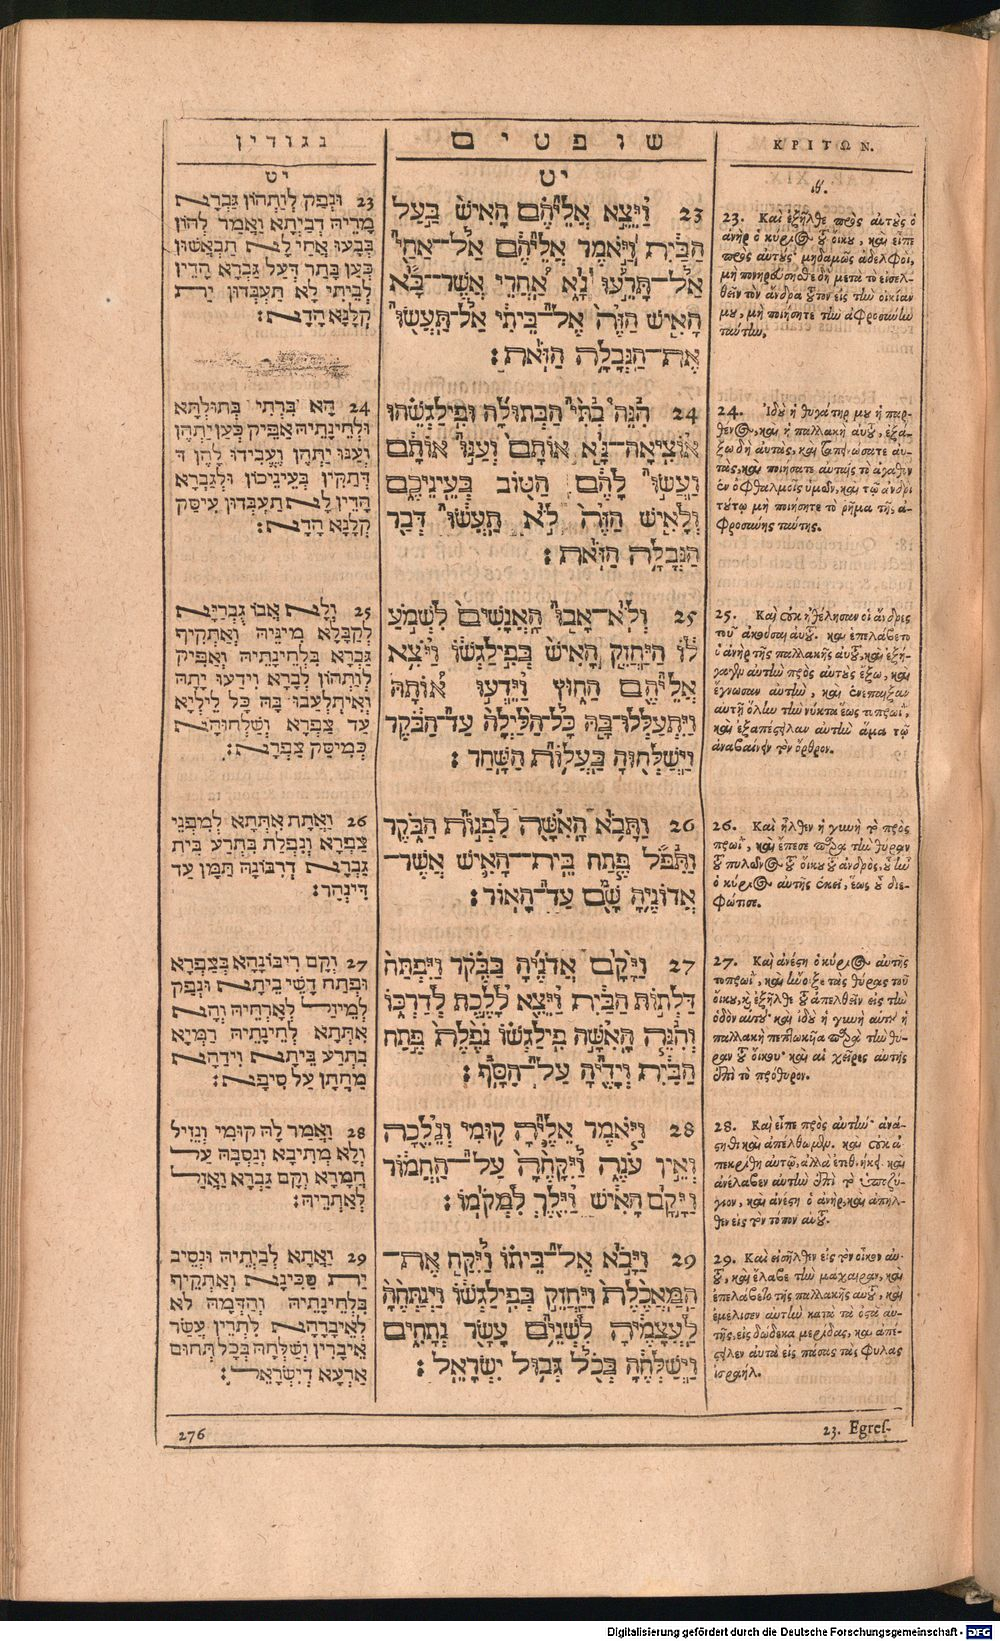 נגודין
יט
23 וּנְפַק לְוָתְהוֹן גַּבְרָא
מָרֵיהּ דְבֵיתָא וַאֲמַר לְהוֹן
בְּבָעוּ אֲחַי לָא תַבְאֲשׁוּן
כְּעַן בָּתַר דְּעַל גַּבְרָא הָדֵין
לְבֵיתִי לָא תַעְבְּדוּן יָת
קְלָנָא הָדָא׃
24 הָא בְּרַתִּי בְּתוּלְתָּא
וּלְחֵינָתֵיהּ אַפֵּיק כְּעַן יַתְהֶן
וְעַנּוּ יַתְהֶן וְעִבִידוּ לְהֶן דְּ
דְּתַקִּין בְּעֵינֵיכוֹן וּלְגַבְרָא
הָדֵין לָא תַעְבְּדוּן עִיסַּק
קְלָנָא הָדָא׃
25 וְלָא אֲבוֹ גֻּבְרַיָּא
לְקַבָּלָא מִינֵּיהּ וְאַתְקֵיף
גַּבְרָא בִּלְחֵינָתֵיהּ וְאַפֵּיק
לְוָתְהוֹן לְבָרָא וִידַעוּ יָתַהּ
וְאִיתְלָעֲבוּ בַהּ כָּל לֵילְיָא
עַד צַפְרָא וְשַׁלְּחוּהָא
כְּמִיסַּק צַפְרָא׃
26 וַאֲתָת אִתְּתָא לְמִפְנֵי
צַפְרָא וּנְפָלַת בִּתְרַע בֵּית
גַּבְרָא דְרִבּוֹנַהּ תַּמָּן עַד
דִּינְהַר׃
27 וְקָם רִיבּוֹנָהָא בְּצַפְרָא
וּפְתַח דָּשֵׁי בֵיתָא וּנְפַק
לְמֵיזַל לְאָרְחֵיהּ וְהָא
אִתְּתָא לְחֵינָתֵיהּ רַמְיָא
בִּתְרַע בֵּיתָא וִידָהָא
מַחֲתָן עַל סִיפָא׃
28 וַאֲמַר לָהּ קוּמִי וְנֵזִיל
וְלָא מְתִיבָא וְנַסְבַהּ עַל
חֲמָרָא וְקָם גַּבְרָא וַאֲזַל
לְאַתְרֵיהּ׃
29 וַאֲתָא לְבֵיתֵיהּ וּנְסֵיב
יָת סַכִּינָא וְאַתְקֵיף
בִּלְחֵינָתֵיהּ וְהַדְּמַהּ לֹא
לְאֵיבָרָהָא לִתְרֵין עֲשַׂר
אֵיבָרִין וְשַׁלְּחַהּ בְּכָל תְּחוּם
אַרְעָא דְיִשְׂרָאֵל׃
שופטים
יט
23 וַיֵּצֵא אֲלֵיהֶם הָאִישׁ בַּעַל
הַבַּיִת וַיֹּאמֶר אֲלֵיהֶם אַל־אַחַי
אַל־תָּרֵעוּ נָא אַחֲרֵי אֲשֶׁר־בָּא
הָאִישׁ הַזֶּה אֶל־בֵּיתִי אַל־תַּעֲשׂוּ
אֶת־הַנְּבָלָה הַזֹּאת׃
24 הִנֵּה בִתִּי הַבְּתוּלָה וּפִילַגְשֵׁהוּ
אוֹצִיאָה־נָּא אוֹתָם וְעַנּוּ אוֹתָם
וַעֲשׂוּ לָהֶם הַטּוֹב בְּעֵינֵיכֶם
וְלָאִישׁ הַזֶּה לֹא תַעֲשׂוּ דְּבַר
הַנְּבָלָה הַזֹּאת׃
25 וְלֹא־אָבוּ הָאֲנָשִׁים לִשְׁמֹעַ
לוֹ הַיַּחֲזֵק הָאִישׁ בְּפִילַגְשׁוֹ וַיֹּצֵא
אֲלֵיהֶם הַחוּץ וַיֵּדְעוּ אוֹתָהּ
וַיִּתְעַלְּלוּ־בָהּ כָּל־הַלַּיְלָה עַד־הַבֹּקֶר
וַיְשַׁלְּחוּהָ בַּעֲלוֹת הַשָּׁחַר׃
26 וַתָּבֹא הָאִשָּׁה לִפְנוֹת הַבֹּקֶר
וַתִּפֹּל פֶּתַח בֵּית־הָאִישׁ אֲשֶׁר־
אֲדוֹנֶיהָ שָּׁם עַד־הָאוֹר׃
27 וַיָּקָם אֲדֹנֶיהָ בַּבֹּקֶר וַיִּפְתַּח
דַּלְתוֹת הַבַּיִת וַיֵּצֵא לָלֶכֶת לְדַרְכּוֹ
וְהִנֵּה הָאִשָּׁה פִילַגְשׁוֹ נֹפֶלֶת פֶּתַח
הַבַּיִת וְיָדֶיהָ עַל־הַסַּף׃
28 וַיֹּאמֶר אֵלֶיהָ קוּמִי וְנֵלֵכָה
וְאֵין עֹנֶה וַיִּקָּחֶהָ עַל־הַחֲמוֹר
וַיָּקָם הָאִישׁ וַיֵּלֶךְ לִמְקֹמוֹ׃
29 וַיָּבֹא אֶל־בֵּיתוֹ וַיִּקַּח אֶת־
הַמַּאֲכֶלֶת וַיַּחֲזֵק בְּפִילַגְשׁוֹ וַיְנַתְּחֶהָ
לַעֲצָמֶיהָ לִשְׁנֵים עָשָׂר נְתָחִים
וַיְשַׁלְּחֶהָ בְּכֹל גְּבוּל יִשְׂרָאֵל׃
ΚΡΙΤΩΝ.
ιθ.
23. Καὶ ἐξῆλθε πρὸς αὐτοὺς ὁ
ἀνὴρ ὁ κύριος τοῦ οἴκου, καὶ εἶπε
πρὸς αὐτούς· μηδαμῶς ἀδελφοί,
μὴ πονηρεύσησθε δὴ μετὰ τὸ εἰσελ-
θεῖν τὸν ἄνδρα τοῦτον εἰς τὴν οἰκίαν
μου, μὴ ποιήσητε τὴν ἀφροσύνην
ταύτην.
24. Ἰδοὺ ἡ θυγάτηρ μου ἡ παρ-
θένος, καὶ ἡ παλλακὴ αὐτοῦ, ἐξά-
ξω δὴ αὐτὰς, καὶ ταπεινώσατε αὐ-
τὰς, καὶ ποιήσατε αὐταῖς τὸ ἀγαθὸν
ἐν ὀφθαλμοῖς ὑμῶν, καὶ τῷ ἀνδρὶ
τούτῳ μὴ ποιήσητε τὸ ῥῆμα τῆς ἀ-
φροσύνης ταύτης.
25. Καὶ οὐκ ἠθέλησαν οἱ ἄνδρες
τοῦ ἀκοῦσαι αὐτοῦ. καὶ ἐπελάβετο
ὁ ἀνὴρ τῆς παλλακῆς αὐτοῦ, καὶ ἐξή-
γαγεν αὐτὴν πρὸς αὐτοὺς ἔξω, καὶ
ἔγνωσαν αὐτὴν, καὶ ἐνέπαιξαν
αὐτῇ ὅλην τὴν νύκτα ἕως τὸ πρωῒ,
καὶ ἐξαπέστειλαν αὐτὴν ἅμα τῷ
ἀναβαίνειν τὸν ὄρθρον.
26. Καὶ ἦλθεν ἡ γυνὴ τὸ πρὸς
πρωῒ, καὶ ἔπεσε παρὰ τὴν θύραν
τοῦ πυλῶνος τοῦ οἴκου τοῦ ἀνδρὸς, οὗ ἦν
ὁ κύριος αὐτῆς ἐκεῖ, ἕως οὗ διέ-
φωτισε.
27. Καὶ ἀνέστη ὁ κύριος αὐτῆς
τοπρωῒ, καὶ ἤνοιξε τὰς θύρας τοῦ
οἴκου, καὶ ἐξῆλθε τοῦ ἀπελθεῖν εἰς τὴν
ὁδὸν αὐτοῦ· καὶ ἰδοὺ ἡ γυνὴ αὐτοῦ ἡ
παλλακὴ πεπτωκῦια παρὰ τὴν θύ-
ραν τοῦ οἴκου· καὶ αἱ χεῖρες αὐτῆς
ἐπὶ τὸ πρόθυρον.
28. Καὶ εἶπε πρὸς αὐτὴν· ἀνά-
στηθι καὶ ἀπέλθωμεν. καὶ οὐκ ἀ-
πεκρίθη αὐτῷ, ἀλλὰ ἐτεθνήκει. καὶ
ἀνέλαβεν αὐτὴν ἐπὶ τὸ ὑποζύ-
γιον, καὶ ἀνέστη ὁ ἀνὴρ, καὶ ἀπῆλ-
θεν εἰς τὸν τόπον αὐτοῦ.
29. Καὶ εἰσῆλθεν εἰς τὸν οἶκον αὐ-
τοῦ, καὶ ἔλαβε τὴν μάχαιραν, καὶ
ἐπελάβετο τῆς παλλακῆς αὐτοῦ, καὶ
ἐμέλισεν αὐτὴν κατὰ τὰ ὀστᾶ αὐ-
τῆς, εἰς δώδεκα μερίδας, καὶ ἀπέ-
στειλεν αὐτὰ εἰς πάσας τὰς φυλὰς
ἰσραήλ.
276
23. Egres-
Digitalisierung gefördert durch die Deutsche Forschungsgemeinschaft - DFG